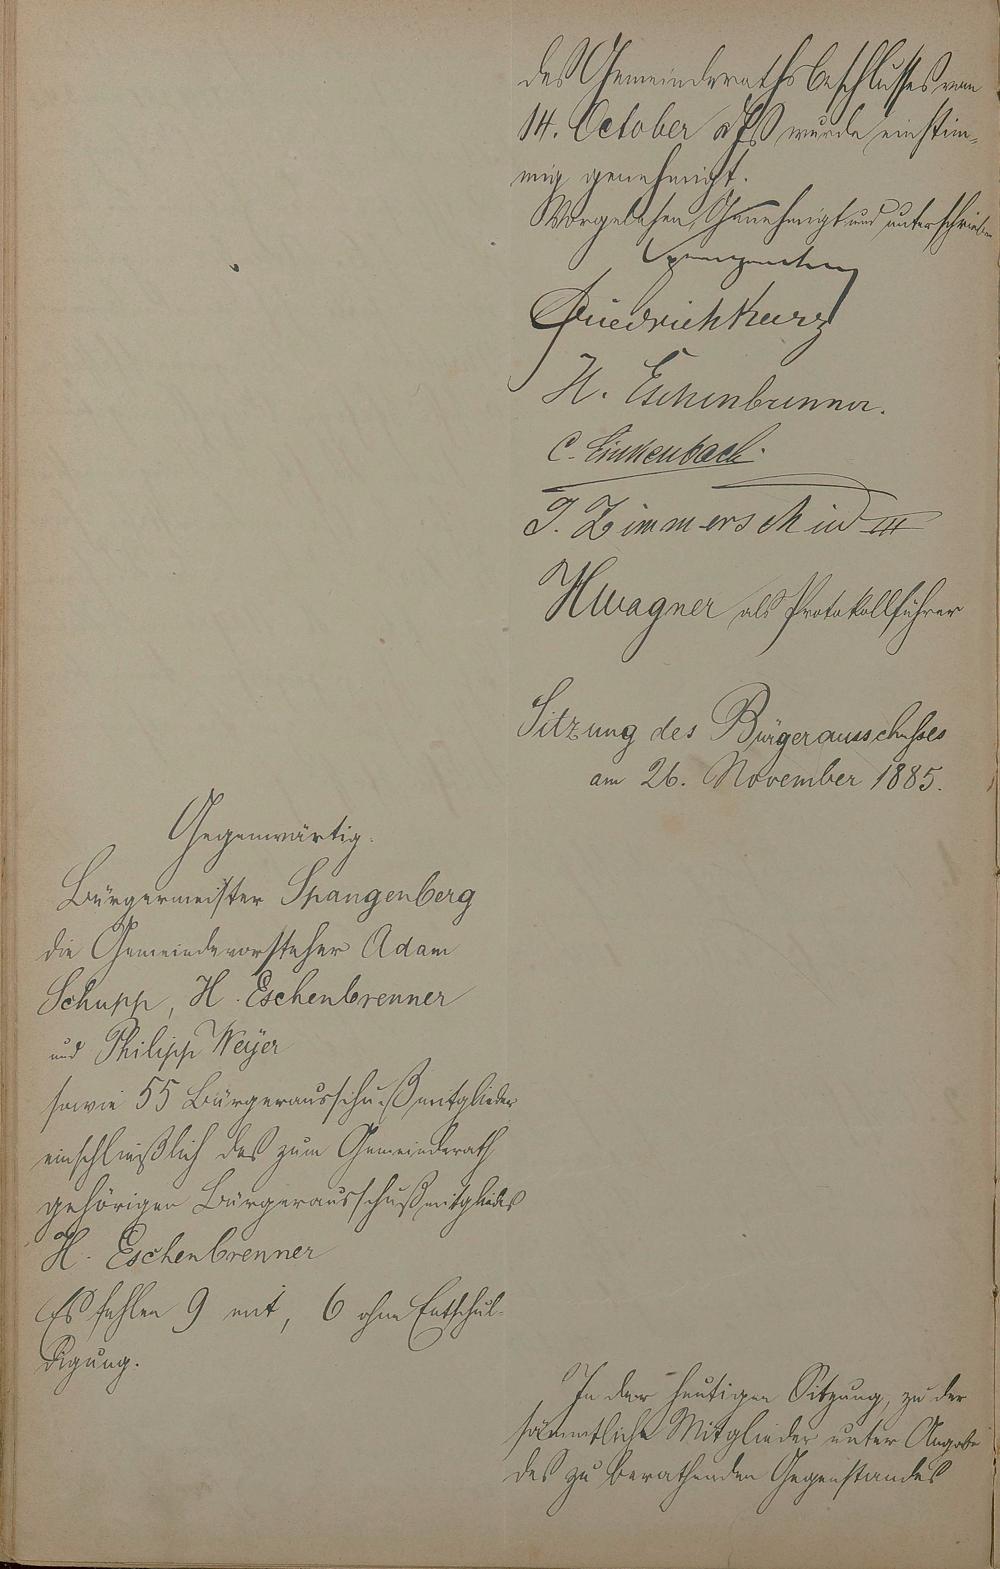 des Gemeinderathsbeschlusses vom
14. October d Js wurde einstim-
mig genehmigt.
Vorgelesen, Genehmigt und unterschrieben
Spangenberg
Friedrich Kurz
H. Eschenbrenner.
C. Linkenbach.
J. Zimmerschied III
HWagner als Protokollführer
Sitzung des Bürgerausschusses
am 26. November 1885.
Gegenwärtig.
Bürgermeister Spangenberg
die Gemeindevorsteher Adam
Schupp, H. Eschenbrenner
und Philipp Weyer
sowie 55 Bürgerausschußmitglieder
einschließlich des zum Gemeinderath
gehörigen Bürgerausschußmitglieds
H. Eschenbrenner
Es fehlen 9 mit, 6 ohne Entschul-
digung.
In der heutigen Sitzung, zu der
sämmtliche Mitglieder unter Angabe
des zu berathenden Gegenstandes